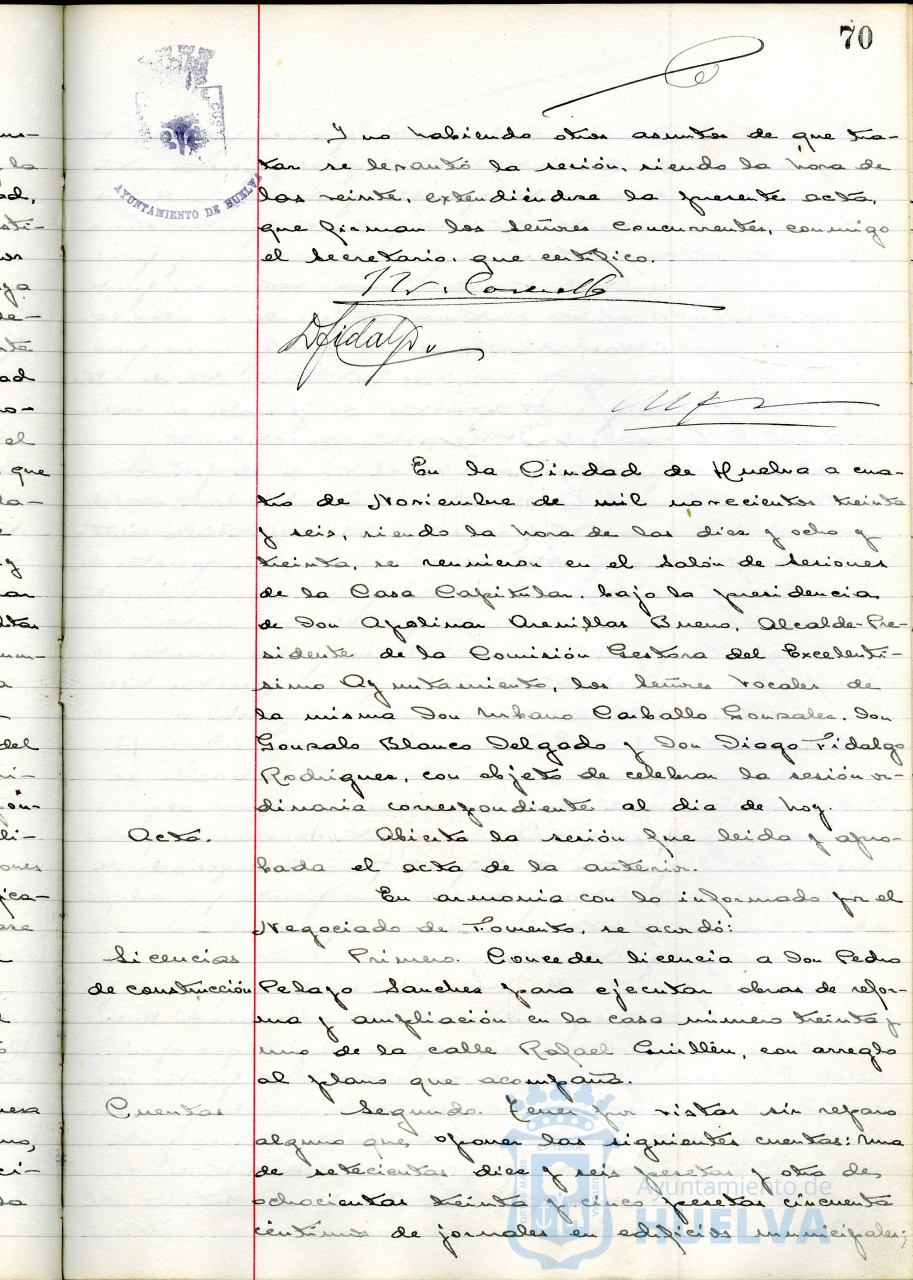 70
AYUNTAMIENTO DE HUELVA
Y no habiendo otros asuntos de que tra-
tar se levantó la sesión, siendo la hora de
las veinte, extendiéndose la presente acta,
que firman los Señores Concurrentes, conmigo
el Secretario, que certifico.
DFidalgo
En la Ciudad de Huelva a cua-
tro de Noviembre de mil novecientos treinta
y seis, siendo la hora de las diez y ocho y
treinta, se reunieron en el Salón de Sesiones
de la Casa Capitular, bajo la presidencia
de Don Apolinar Arenillas Bueno, Alcalde-Pre-
sidente de la Comisión Gestora del Excelentí-
simo Ayuntamiento, los Señores Vocales de
la misma Don Urbano Carballo Gonzalez, Don
Gonzalo Blanco Delgado y Don Diego Fidalgo
Rodriguez, con objeto de celebrar la sesión or-
dinaria correspondiente al dia de hoy.
Acta. Abierta la sesión fue leida y apro-
bada el acta de la anterior.
En armonia con lo informado por el
Negociado de Fomento, se acordó:
Licencias Primero. Conceder licencia a Don Pedro
de construcción Pelayo Sanchez para ejecutar obras de refor-
ma y ampliación en la casa número treinta y
uno de la calle Rafael Guillén, con arreglo
al plano que acompaña.
Cuentas Segundo. Tener por vistas sin reparo
alguno que oponer las siguientes cuentas: una
de setecientas diez y seis pesetas y otra de
ochocientas treinta y cinco pesetas cincuenta
centimos de jornales en edificios municipales;
Ayuntamiento de
HUELVA